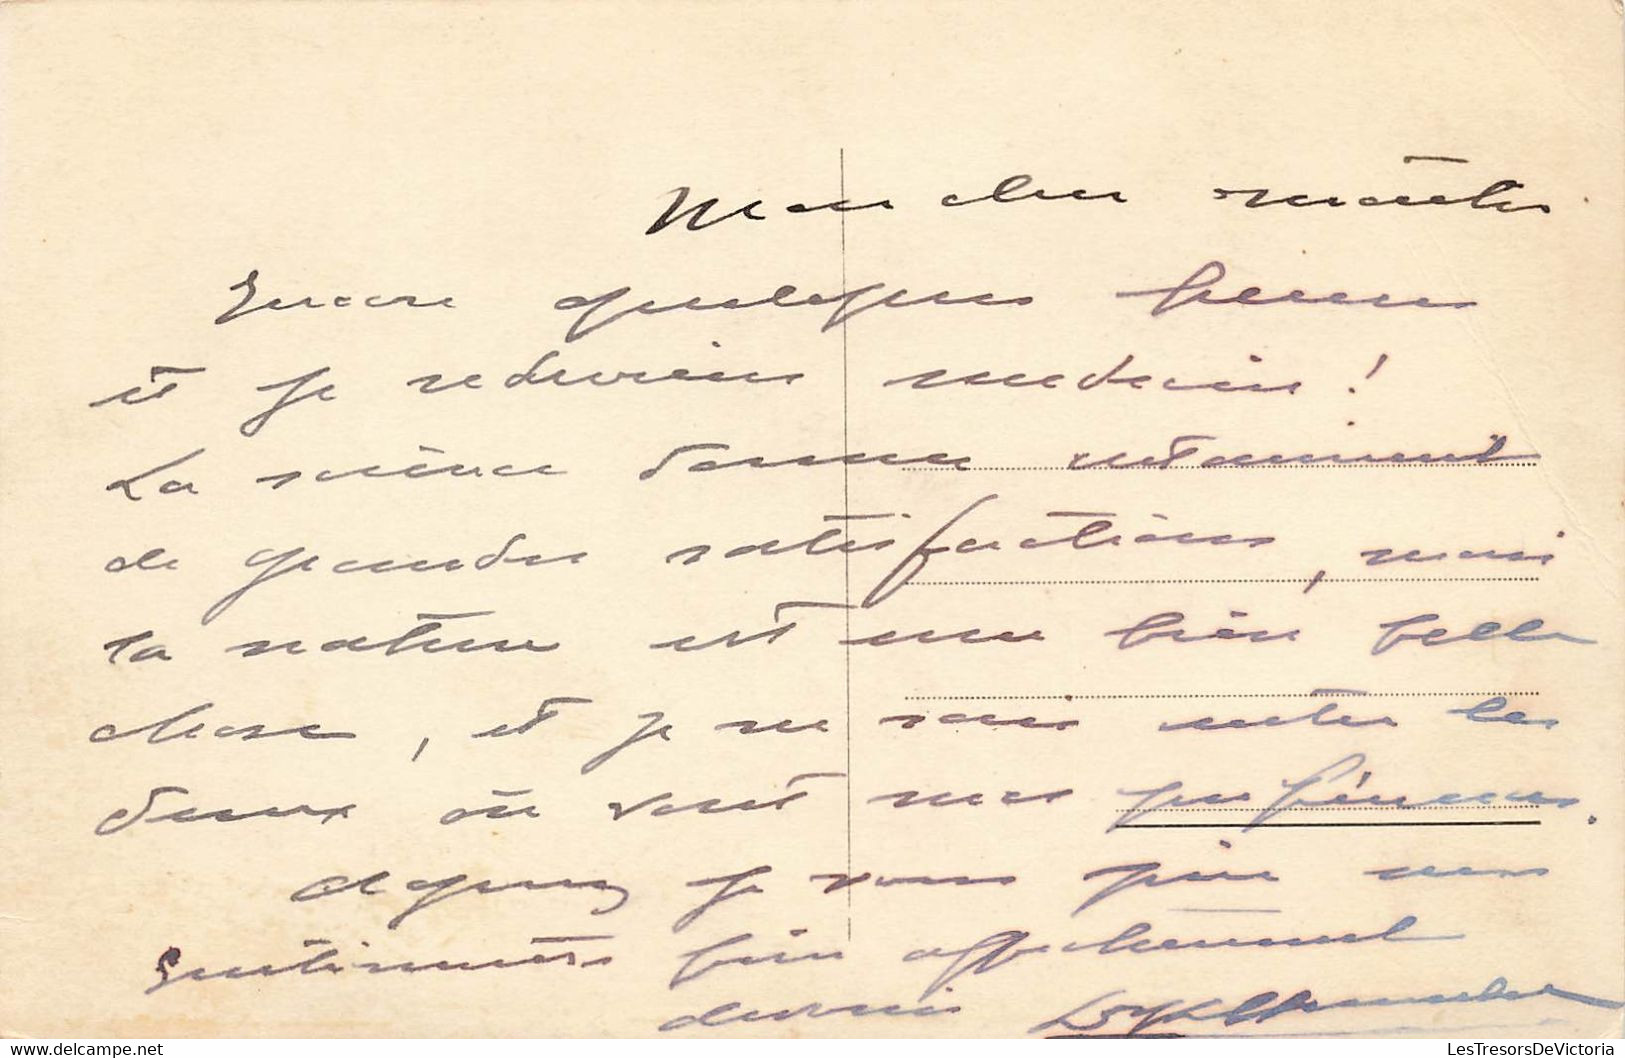 Mon cher maître
Encore quelques heures
et je redeviens medecin !
La science donne certainement
de grandes satisfactions, mais
la nature est une bien belle
chose, et je ne sais entre les
deux où vont mes préférences.
agreez je vous prie mes
sentiments bien affectueusement
LesTresorsDeVictoria
www.delcampe.net